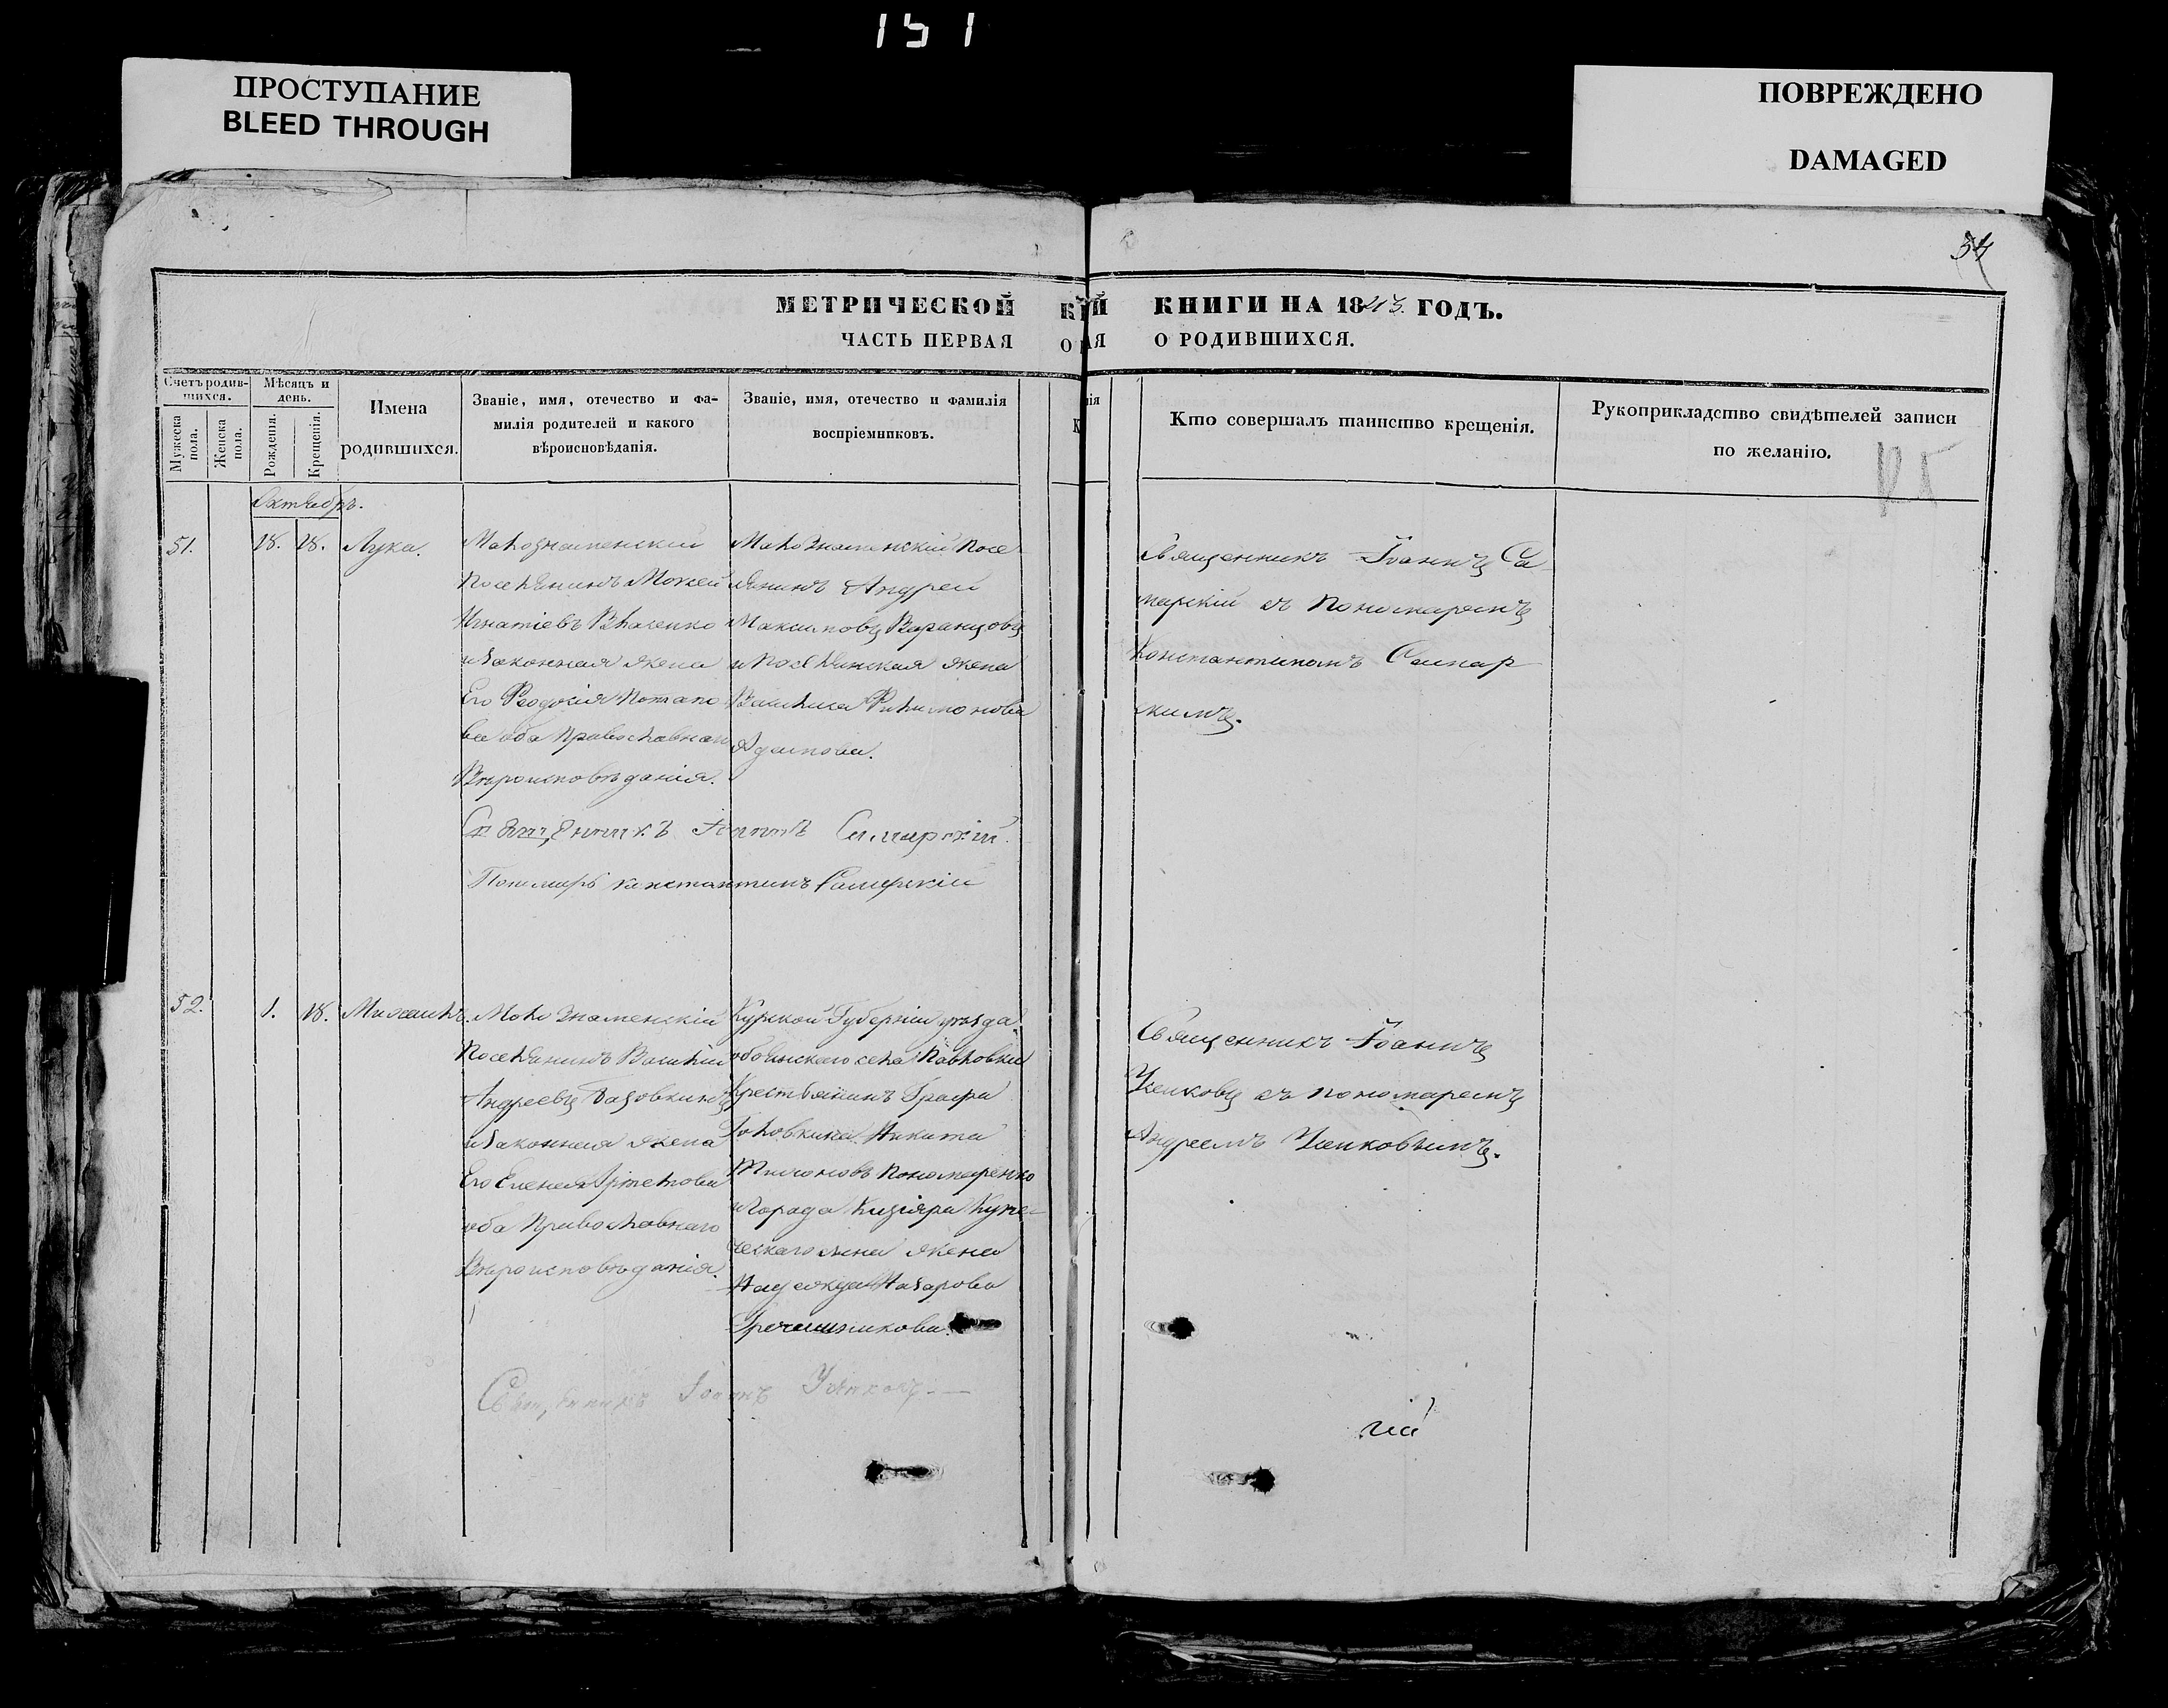 151
ПРОСТУПАНИЕ
BLEED THROUGH
ПОВРЕЖДЕНО
DAMAGED
МЕТРИЧЕСКОЙ
КНИГИ НА 1843. ГОДЪ.
ЧАСТЬ ПЕРВАЯ
О РОДИВШИХСЯ.
Счетъ родив-
шихся.
Мужеска пола.
Женска пола.
Мѣсяцъ и
день.
Рожденія.
Крещенія.
Имена
родившихся.
Званіе, имя, отечество и фа-
милія родителей и какого
вѣроисповѣданія.
Званіе, имя, отечество и фамилія
воспріемниковъ.
Кто совершалъ таинство крещенія.
Рукоприкладство свидѣтелей записи
по желанію.
Октябрь.
51.
18. 18.
Лука.
Малознаменскій
Поселянинъ Мокей
Игнатіевъ Власенко
и законная жена
Его Феодосія Потапо
ва оба Православнаго
Вѣроисповѣданія.
МалоЗнаменскій Посе
лянинъ Андрей
Максимовъ Варанцовъ
и Поселянская жена
Василиса Филимонова
Адамова.
Священникъ Іоаннъ Са
марскій съ Пономаремъ
Константиномъ Самар
скимъ.
Священникъ Іоаннъ Самарскій.
Пономарь Константинъ Самарскій
52.
1. 18.
Михаилъ.
МалоЗнаменскій
Поселянинъ Василій
Андреевъ
и законная жена
Его Елена
оба Православнаго
Вѣроисповѣданія.
Курской Губерніи уѣзда
обоянскаго села Павловки
Крестьянинъ Графа
Головкина Никита
Тихоновъ Пономаренко
и города Кизляра Купе-
ческаго сына жена
Надежда Назарова
Гречишникова.
Священникъ Іоаннъ
съ пономаремъ
Андреемъ
Священникъ Іоаннъ